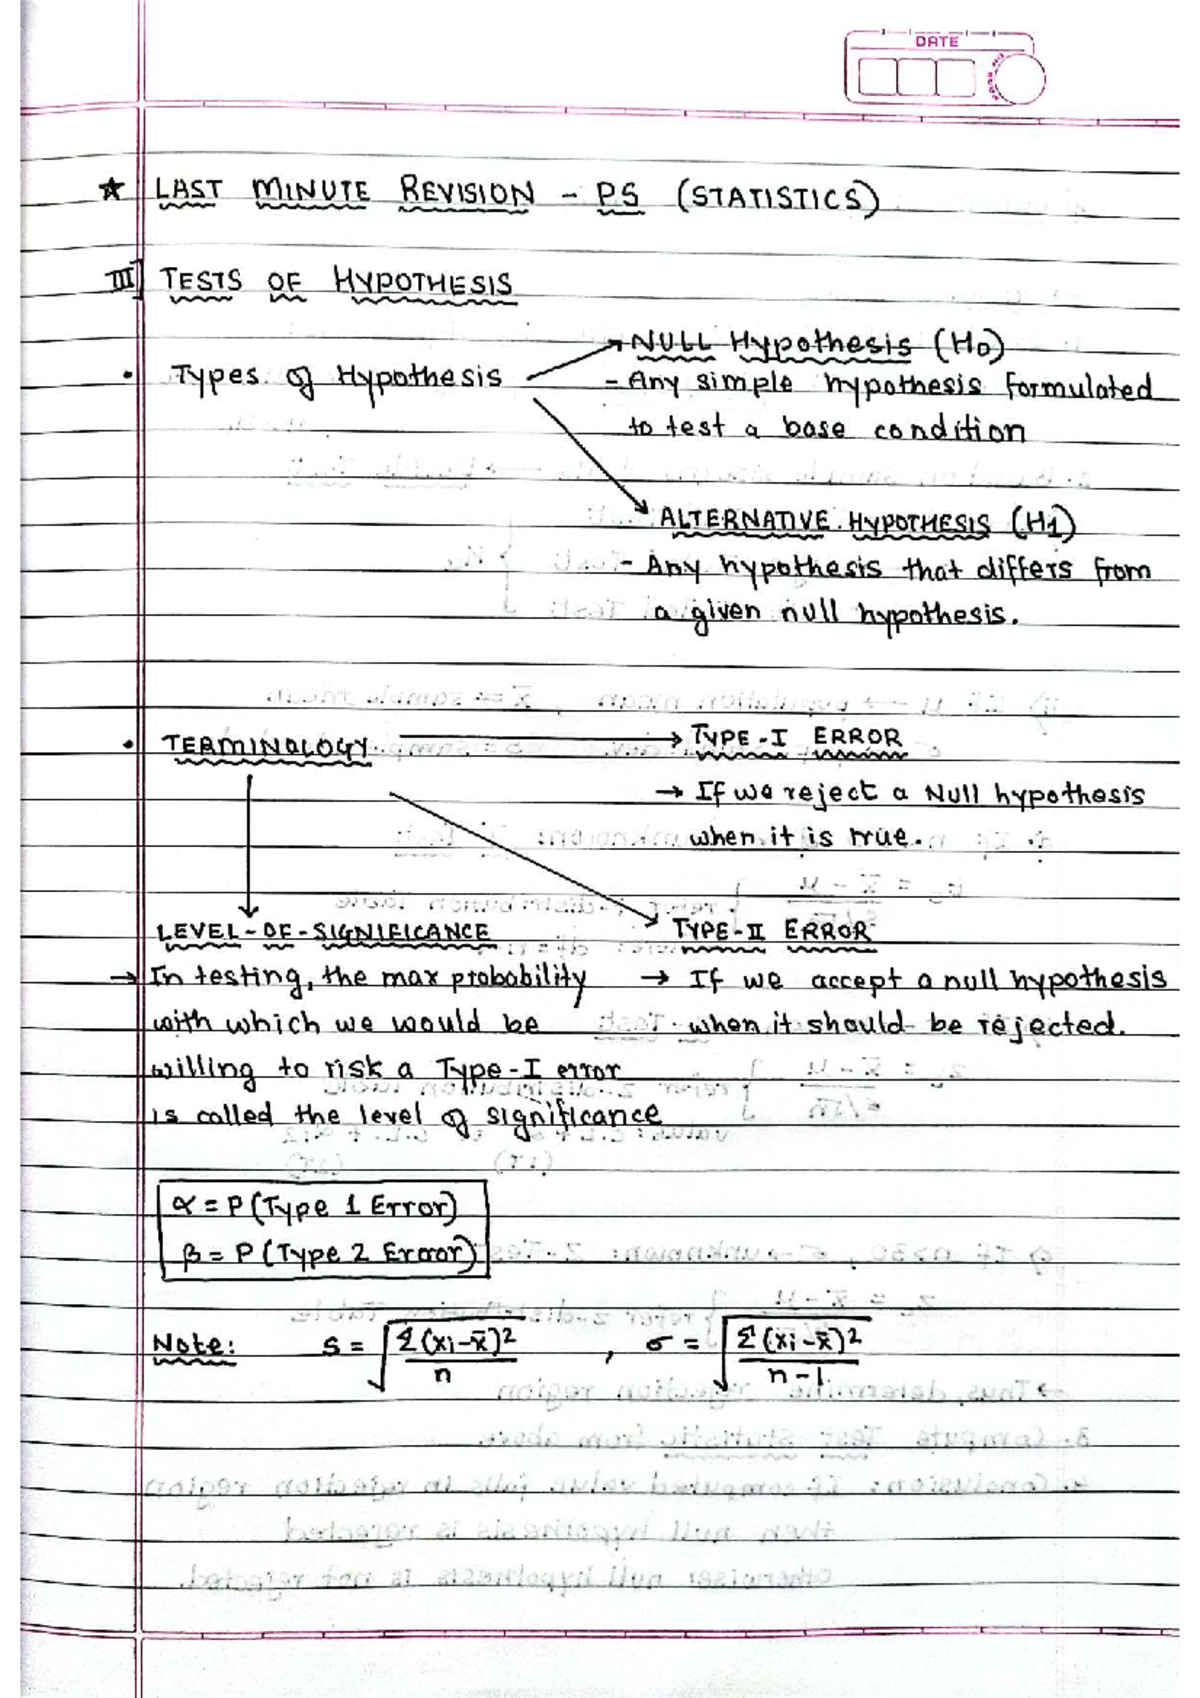 DATE
★ LAST MINUTE REVISION - PS (STATISTICS)
III] TESTS OF HYPOTHESIS
• Types of Hypothesis → NULL Hypothesis (H0)
- Any simple hypothesis formulated
to test a base condition
→ ALTERNATIVE HYPOTHESIS (H1)
- Any hypothesis that differs from
a given null hypothesis.
• TERMINOLOGY → TYPE-I ERROR
→ If we reject a Null hypothesis
when it is true.
LEVEL-OF-SIGNIFICANCE
→ In testing, the max probability
with which we would be
willing to risk a Type-I error
is called the level of significance
TYPE-II ERROR
→ If we accept a null hypothesis
when it should be rejected.
α = P(Type 1 Error)
β = P(Type 2 Eroror)
Note: s = √(Σ(xi-x̄)²/n) , σ = √(Σ(xi-x̄)²/n-1)